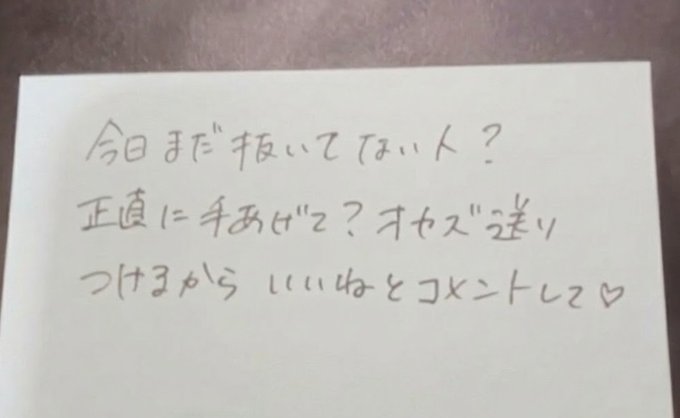 今日まだ抜いてない人?
正直に手あげて?オカズ送り
つけるからいいねとコメントして♡